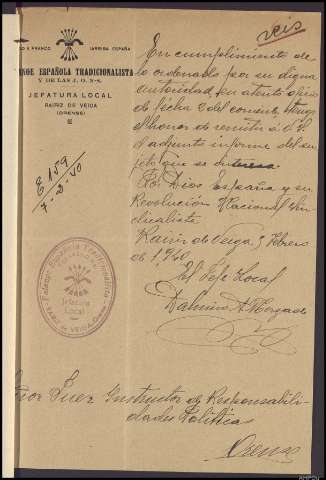 seis
O FRANCO ARRIBA ESPAÑA
NGE ESPAÑOLA TRADICIONALISTA
Y DE LAS J. O. N-S.
JEFATURA LOCAL
RAIRIZ DE VEIGA
(ORENSE)
En cumplimiento de
lo ordenado por su digna
autoridad, en atento oficio
de fecha 2 del corriente, tengo
el honor de remitir a V. S.
adjunto informe del su
jeto que se
Por Dios España y su
Revolución Nacional Sin
dicalista
Rairiz de Veiga, 5 Febrero
de 1.940
El Jefe Local
E 159
7-2-40
Falange Española Tradicionalista
Jefatura
Local
Juez Instructor de Responsabili-
dades Políticas
Orense